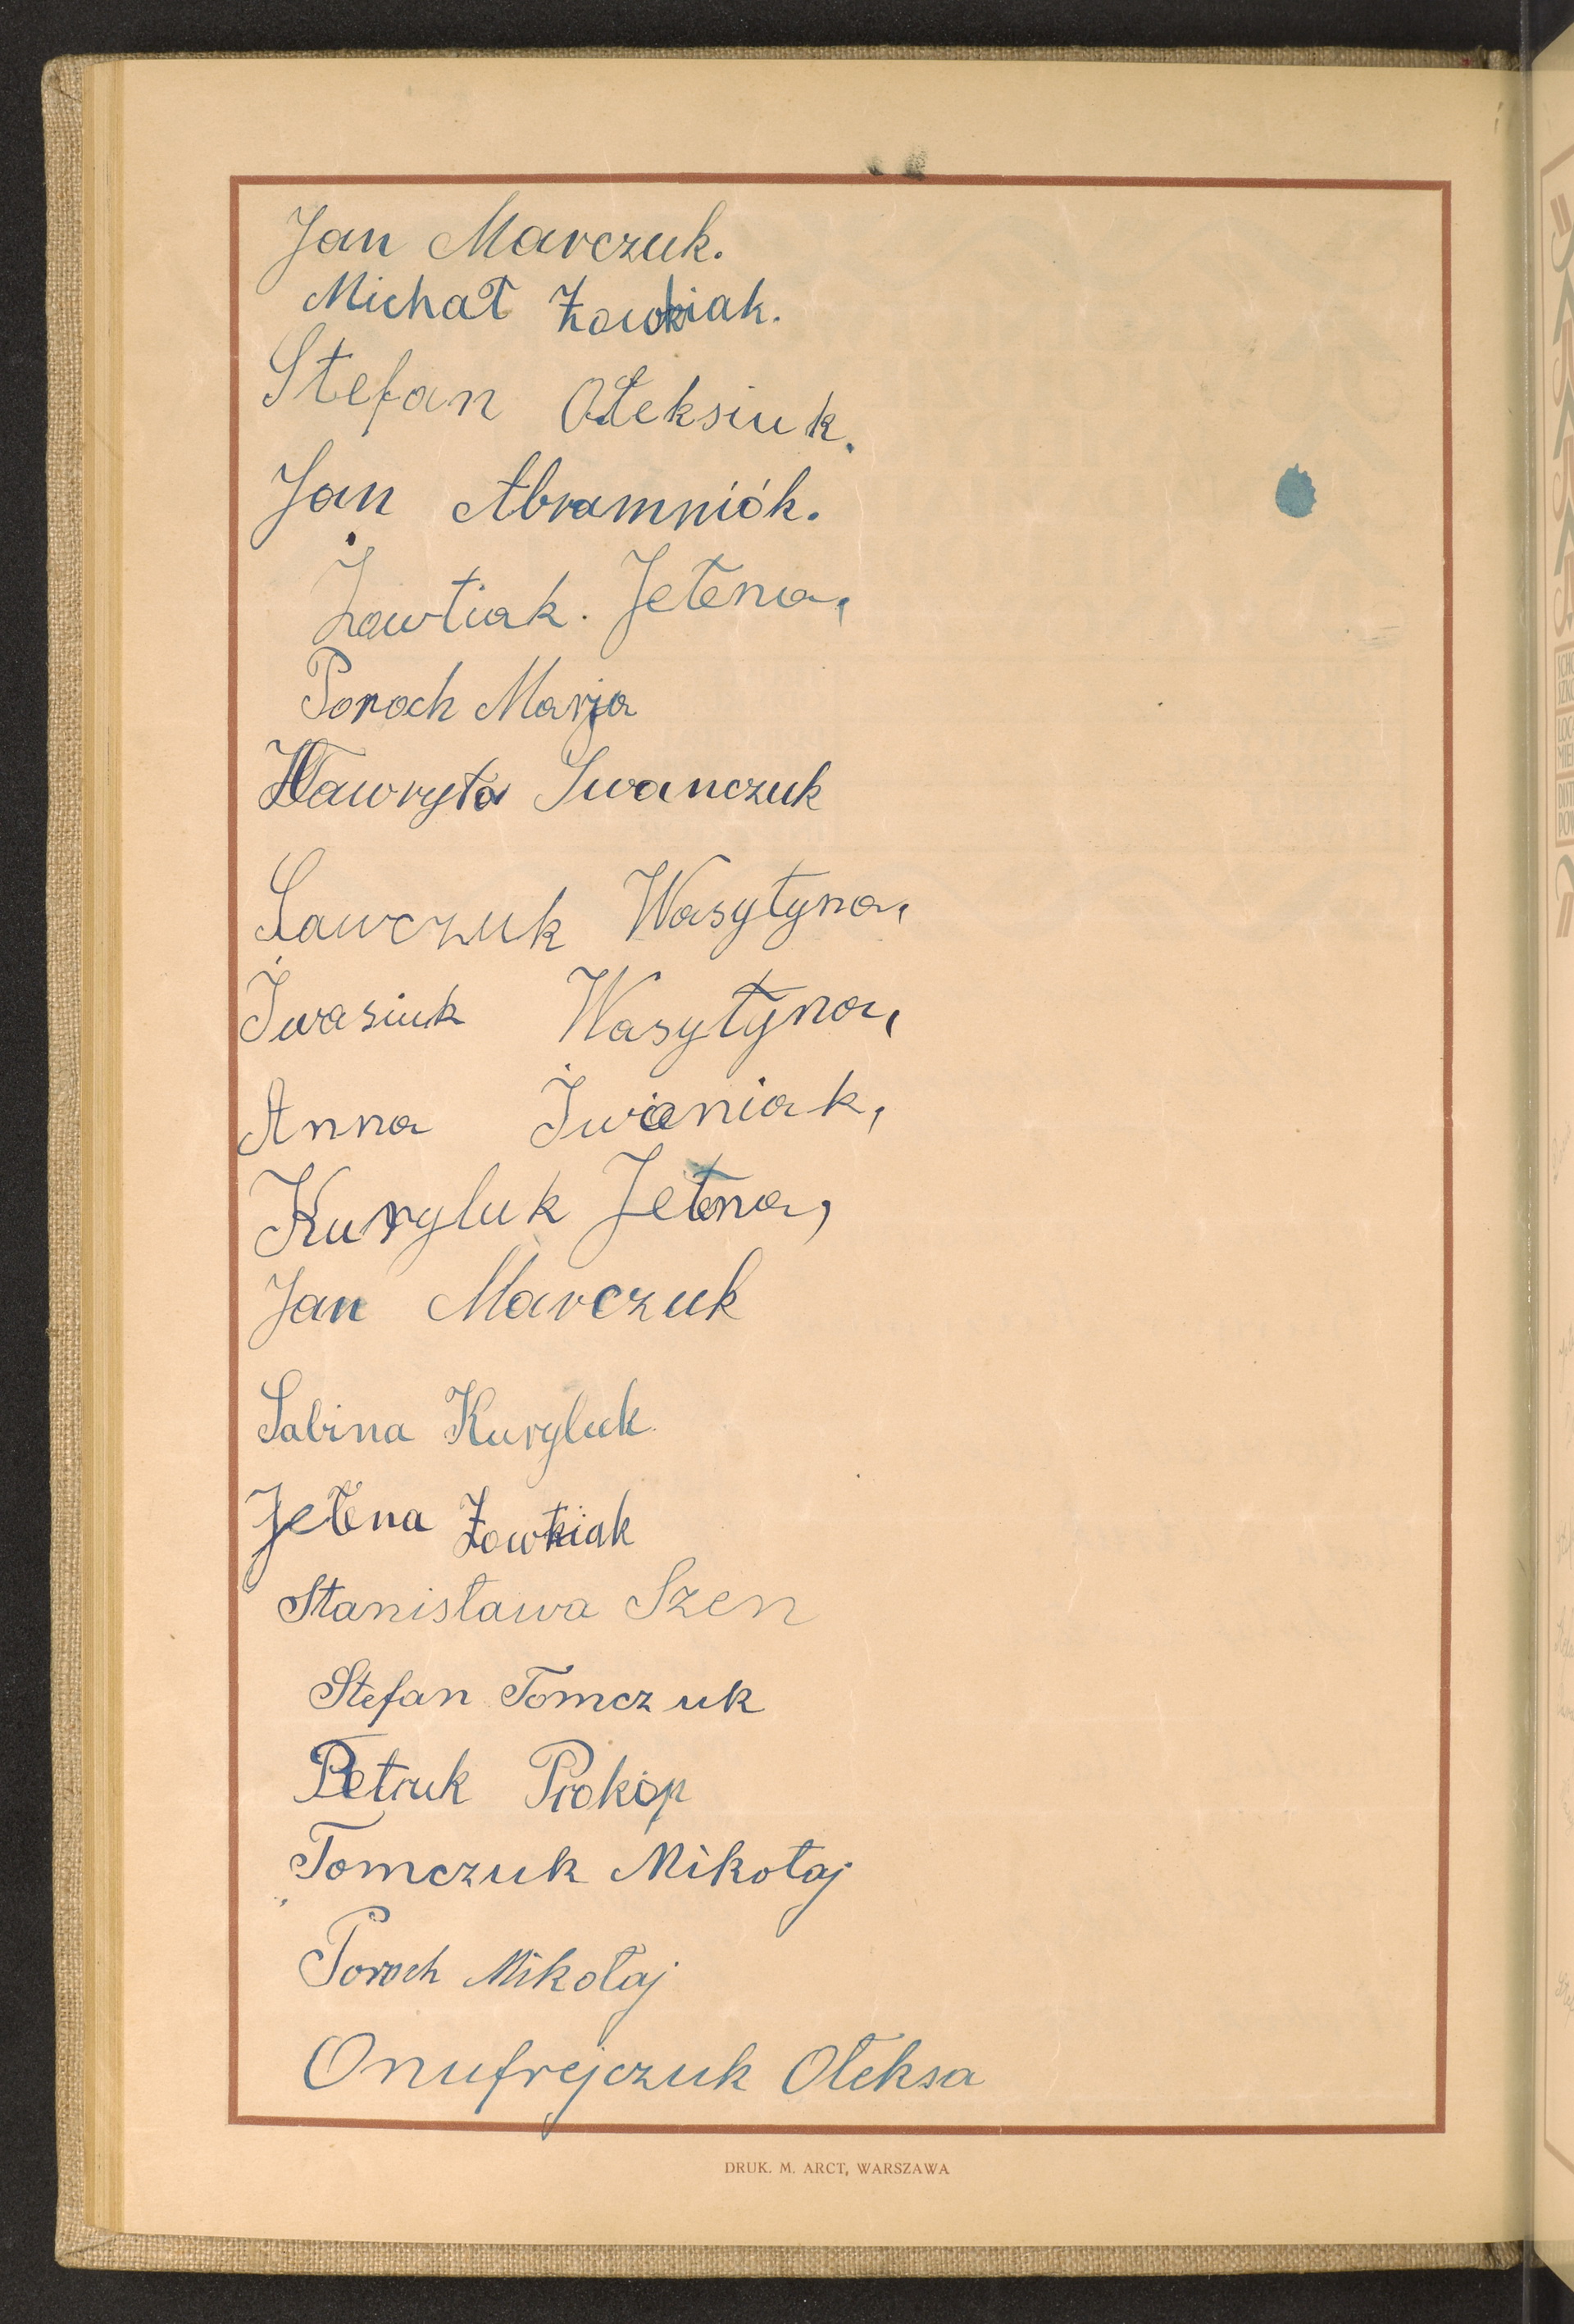 Jan Marczuk.
Michał Żowkiak.
Stefan Ołeksiuk.
Jan Abramniók.
Żowtiak. Jełena,
Poroch Marja
Hawryła Iwanczuk
Sawczuk Wasyłyna,
Iwasiuk Wasyłyna,
Anna Iwaniak,
Kuryluk Jełena,
Jan Marczuk
Sabina Kuryluk
Jełena Żowtiak
Stanisława Szen
Stefan Tomczuk
Petruk Prokop
Tomczuk Mikołaj
Poroch Mikołaj
Onufrejczuk Ołeksa
DRUK. M. ARCT, WARSZAWA